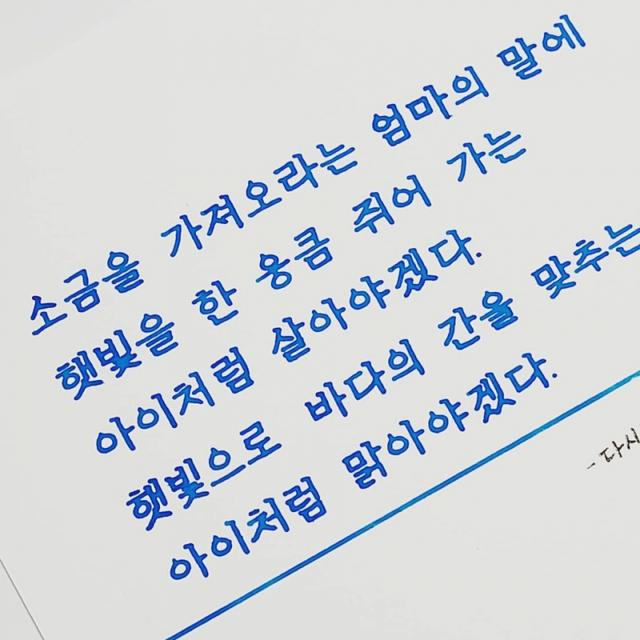 소금을 가져오라는 엄마의 말에
햇빛을 한 웅큼 쥐어 가는
아이처럼 살아야겠다.
햇빛으로 바다의 간을 맞추는
아이처럼 맑아야겠다.
- 다시